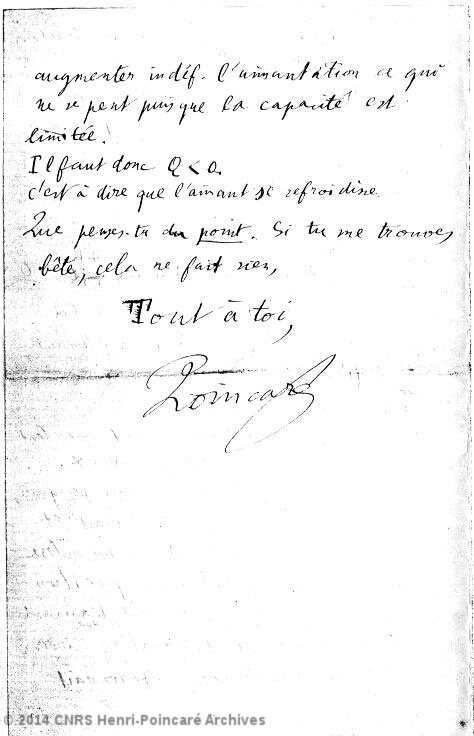 augmenter indéf. l'aimantation ce qui
ne se peut puisque la capacité est
limitée.
Il faut donc Q < 0.
c'est à dire que l'aimant se refroidisse
Que penses-tu du point. Si tu me trouves
bête, cela ne fait rien,
Tout à toi,
Poincaré
© 2014 CNRS Henri-Poincaré Archives